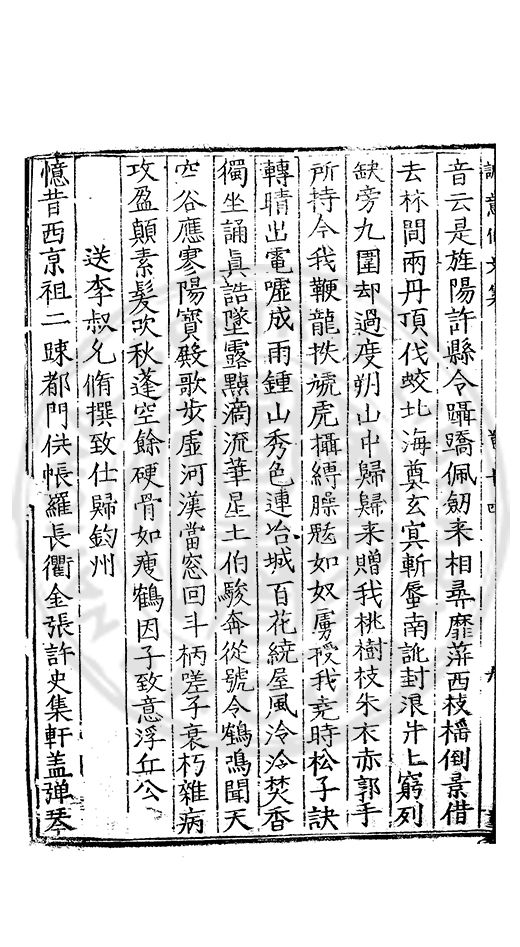 音云是旌陽許縣令躡蹻佩劒来相尋靡蓱西枝橊倒景借
去林間兩丹頂伐蛟北海奠玄㝠斬蜃南訛封浪井上窮列
缺旁九圍却過度朔山中歸歸来贈我桃樹枝朱衣赤郭手
所持令我鞭龍抶虓虎攝縛臊魃如奴虜授我堯時松子訣
轉晴出電噓成雨鍾山秀色連冶城百花繞屋風泠泠焚香
獨坐誦眞誥墜露點滴流華星土伯駿奔從號令鶴鴻聞天
空谷應寥陽寳殿歌步虛河漢當窓回斗柄嗟子衰朽雜病
攻盈顛素髮吹秋蓬空餘硬骨如瘦鶴因子致意浮丘公
送李叔允脩撰致仕歸鈞州
憶昔西京祖二踈都門供帳羅長衢金張許史集軒盖弹琴